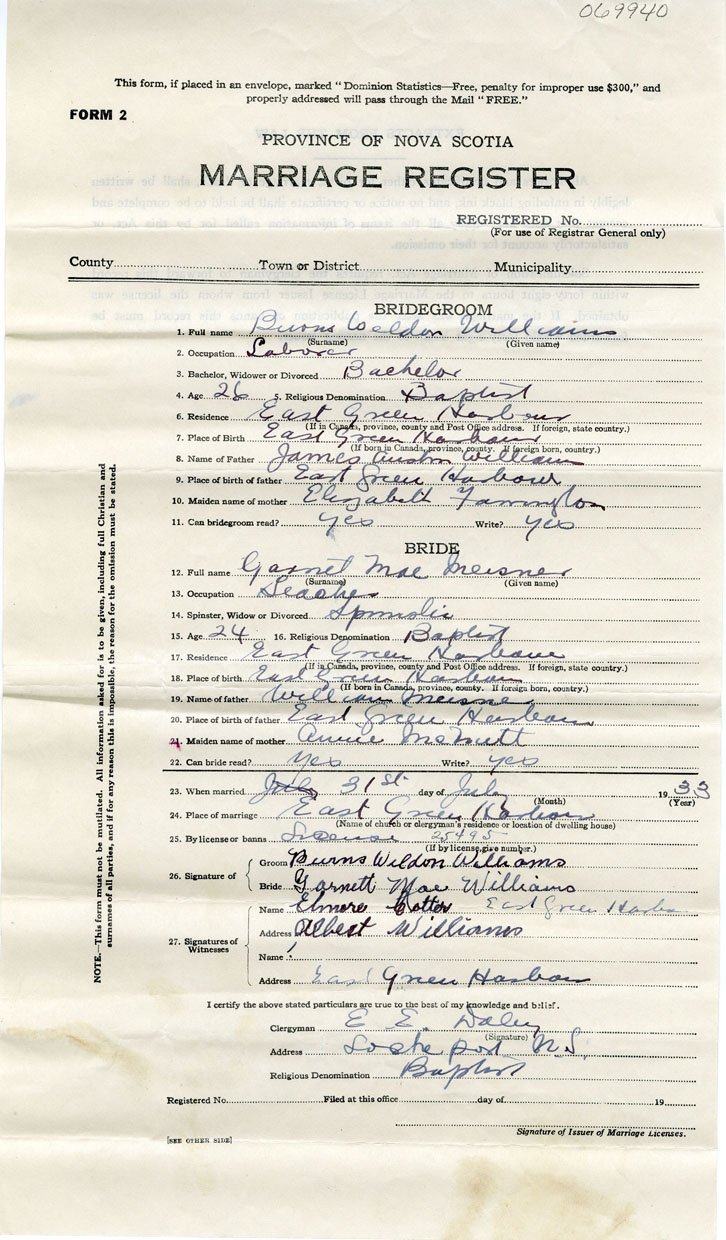 069940
This form, if placed in an envelope, marked "Dominion Statistics—Free, penalty for improper use $300," and
properly addressed will pass through the Mail "FREE."
FORM 2
PROVINCE OF NOVA SCOTIA
MARRIAGE REGISTER
REGISTERED No.
(For use of Registrar General only)
County Town or District Municipality
BRIDEGROOM
1. Full name Burns Weldon Williams
(Surname) (Given name)
2. Occupation Laborer
3. Bachelor, Widower or Divorced Bachelor
4. Age 26 5. Religious Denomination Baptist
6. Residence East Green Harbour
(If in Canada, province, county and Post Office address. If foreign, state country.)
7. Place of Birth East Green Harbour
(If born in Canada, province, county. If foreign born, country.)
8. Name of Father James William
9. Place of birth of father East Green Harbour
10. Maiden name of mother Elizabeth Farrington
11. Can bridegroom read? yes Write? yes
BRIDE
12. Full name Garnet Mae Meisner
(Surname) (Given name)
13. Occupation Teacher
14. Spinster, Widow or Divorced
15. Age 24 16. Religious Denomination Baptist
17. Residence East Green Harbour
(If in Canada, province, county and Post Office address. If foreign, state country.)
18. Place of birth East Green Harbour
(If born in Canada, province, county. If foreign born, country.)
19. Name of father William Meisner
20. Place of birth of father East Green Harbour
21. Maiden name of mother Annie McNutt
22. Can bride read? yes Write? yes
23. When married July 31st day of July 1933
(Month) (Year)
24. Place of marriage East Green Harbour
(Name of church or clergyman's residence or location of dwelling house)
25. By license or banns License 25495
(If by license, give number.)
26. Signature of
Groom Burns Wildon Williams
Bride Garnett Mae Williams
27. Signatures of
Witnesses
Name Elmore East Green Harbo
Address Albert Williams
Name
Address East Green Harbour
I certify the above stated particulars are true to the best of my knowledge and belief.
Clergyman E. E. Daley
(Signature)
Address Lockeport N.S.
Religious Denomination Baptist
Registered No. Filed at this office day of 19
Signature of Issuer of Marriage Licenses.
[SEE OTHER SIDE]
NOTE.—This form must not be mutilated. All information asked for is to be given, including full Christian and
surnames of all parties, and if for any reason this is impossible, the reason for the omission must be stated.